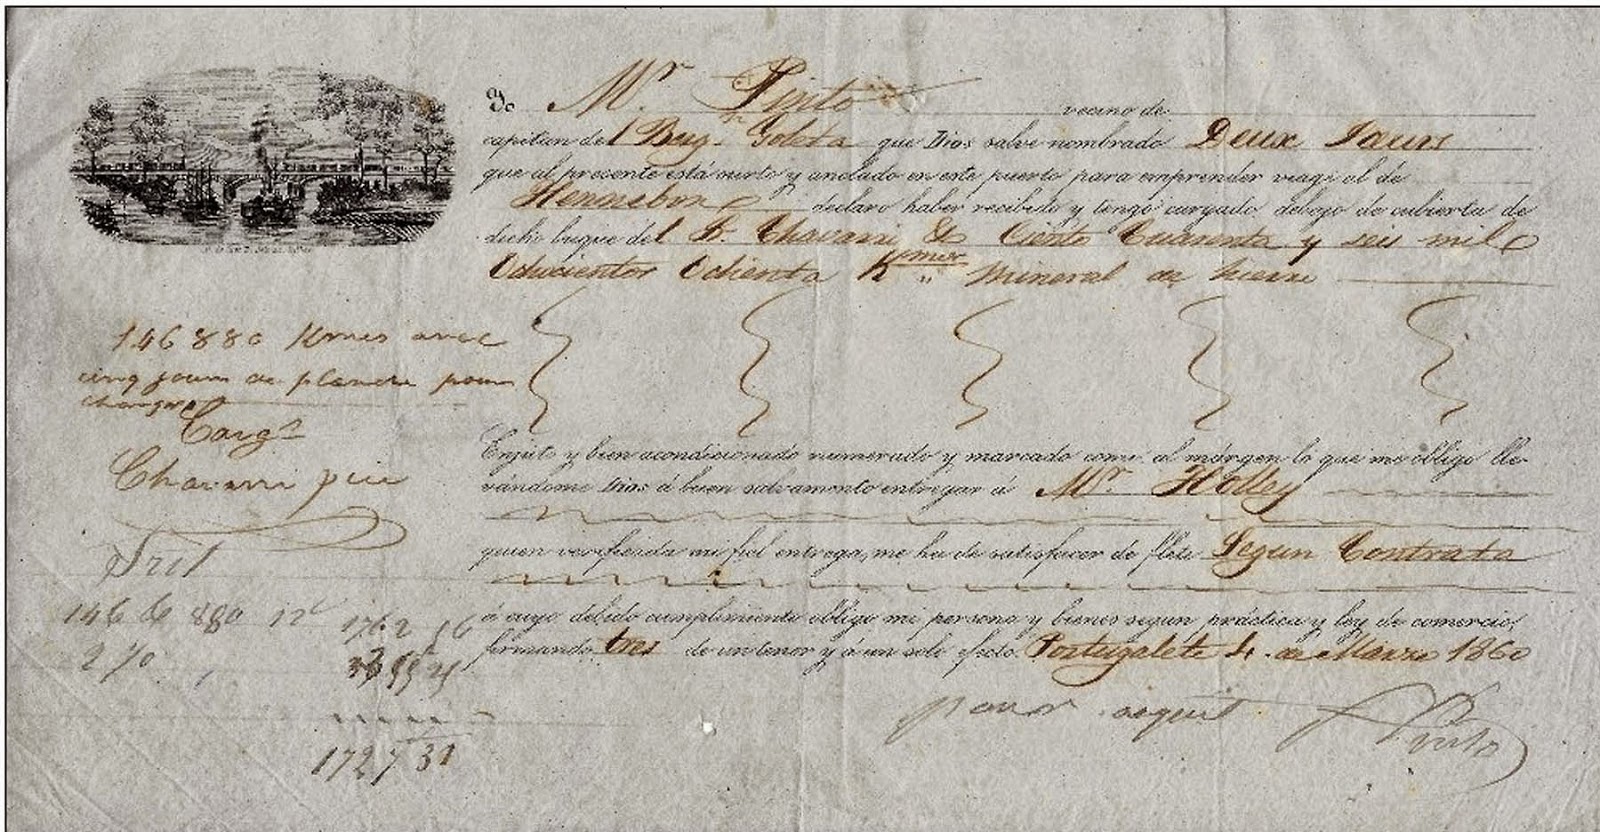 Yo Mr Pinto vecino de
capitan del Berg.n Goleta que Dios salve nombrado Deux Saurs
que al presente está surto y anclado en este puerto para emprender viage al de
Hennebon declaro haber recibido y tengo cargado debajo de cubierta de
dicho buque del Sr. Chavarri & Ciento Cuarenta y seis mil
Ochocientos Ochenta K Mineral de hierro
146880 Kmes avec
cinq jours de planche pour
charger
Carg.n
Chavarri
Enjuto y bien acondicionado numerado y marcado como al márgen lo que me obligo lle-
vándome Dios á buen salvamento entregar á Mr. Holley
quien verificada mi fiel entrega, me ha de satisfacer de flete Segun Contrata
146 880 12
1762 56
270
35 25
1727 31
á cuyo debido cumplimiento obligo mi persona y bienes segun práctica y ley de comercio,
firmando tres de un tenor y á un solo efecto. Portugalete 4 de Marzo 1860
pour Pinto